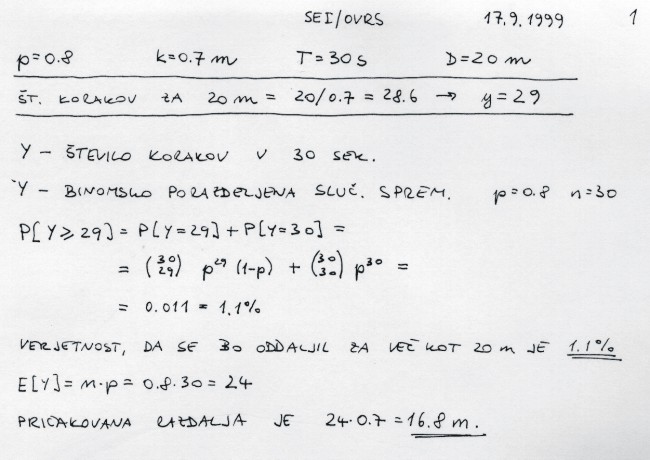 SEI/OVRS 17.9.1999 1
p=0.8 k=0.7 m T=30s D=20 m
ŠT. KORAKOV ZA 20 m = 20/0.7 = 28.6 → y=29
Y – ŠTEVILO KORAKOV V 30 SEK.
Y – BINOMSKO PORAZDELJENA SLUČ. SPREM. p=0.8 n=30
P[Y≥29] = P[Y=29] + P[Y=30] =
= (30 29) p²⁹ (1-p) + (30 30) p³⁰ =
= 0.011 = 1.1%
VERJETNOST, DA SE BO ODDALJIL ZA VEČ KOT 20 m JE 1.1%
E[Y] = n·p = 0.8·30 = 24
PRIČAKOVANA RAZDALJA JE 24·0.7 = 16.8 m.